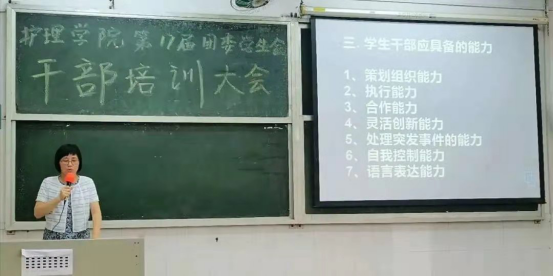 护理学院第17届团委学生会
干部培训大会
三、学生干部应具备的能力
1、策划组织能力
2、执行能力
3、合作能力
4、灵活创新能力
5、处理突发事件的能力
6、自我控制能力
7、语言表达能力